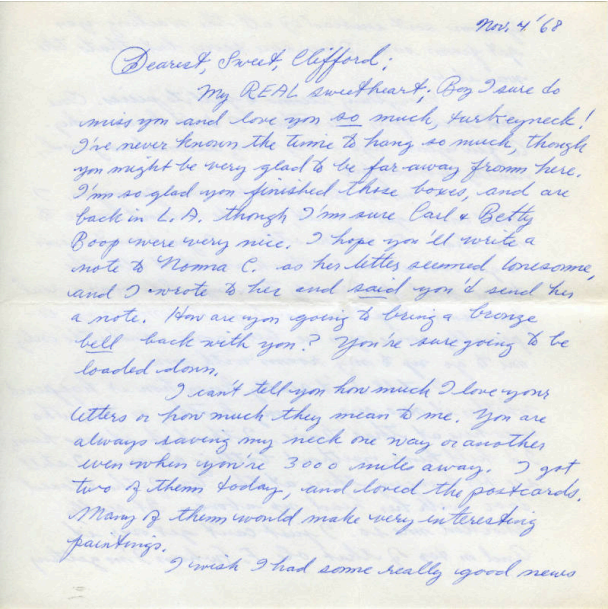 Nov. 4 '68
Dearest, Sweet, Clifford;
My REAL sweetheart; Boy I sure do
miss you and love you so much, turkeyneck!
I've never known the time to hang so much, though
you might be very glad to be far away from here.
I'm so glad you finished those boxes, and are
back in L.A. though I'm sure Carl & Betty
Boop were very nice. I hope you'll write a
note to Nonna C. as her letter seemed lonesome,
and I wrote to her and said you'd send her
a note. How are you going to bring a bronze
bell back with you? You're sure going to be
loaded down.
I can't tell you how much I love your
letters or how much they mean to me. You are
always saving my neck one way or another
even when you're 3000 miles away. I got
two of them today, and loved the postcards.
Many of them would make very interesting
paintings.
I wish I had some really good news